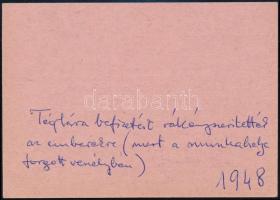 Téglára befizetést rákényszerítették
az emberekre (mert a munkahelye
forgott veszélyben)
1948
darabanth